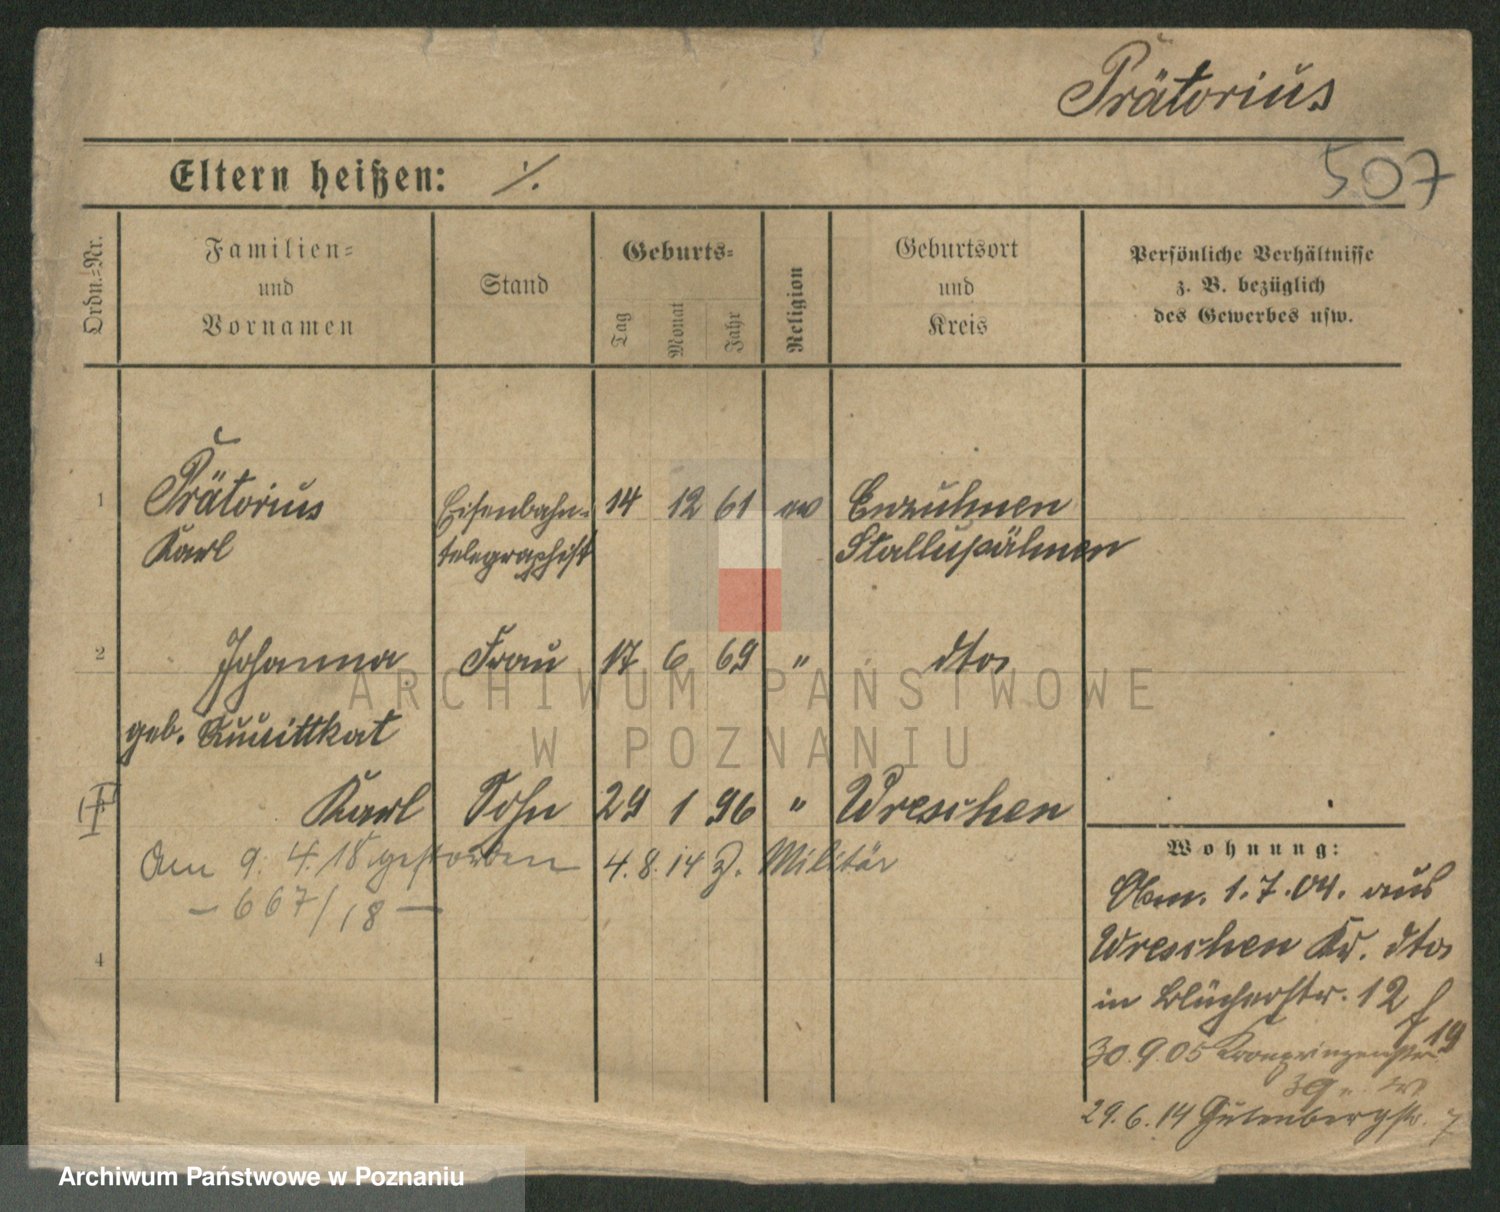 Prätorius
507
Eltern heißen: ·/.
Ordn.-Nr.
Familien-
und
Vornamen
Stand
Geburts-
Tag
Monat
Jahr
Religion
Geburtsort
und
Kreis
Persönliche Verhältnisse
z. B. bezüglich
des Gewerbes usw.
1 Prätorius Eisenbahn- 14 12 61 ev Enzuhnen
Karl telegraphist Stallupöhnen
2 Johanna Frau 17 6 69 " dto
geb.
Karl Sohn 29 1 96 " Wreschen
Am 9. 4. 18 gestorben 4. 8. 14 z. Militär
- 667/18 -
4
Wohnung:
1.7.04. aus
Wreschen Kr. dto
in Blücherstr. 12
19
30.9.05 Kronprinzenstr.
39
29.6.14 Gutenbergstr. 7
ARCHIWUM PAŃSTWOWE
W POZNANIU
Archiwum Państwowe w Poznaniu